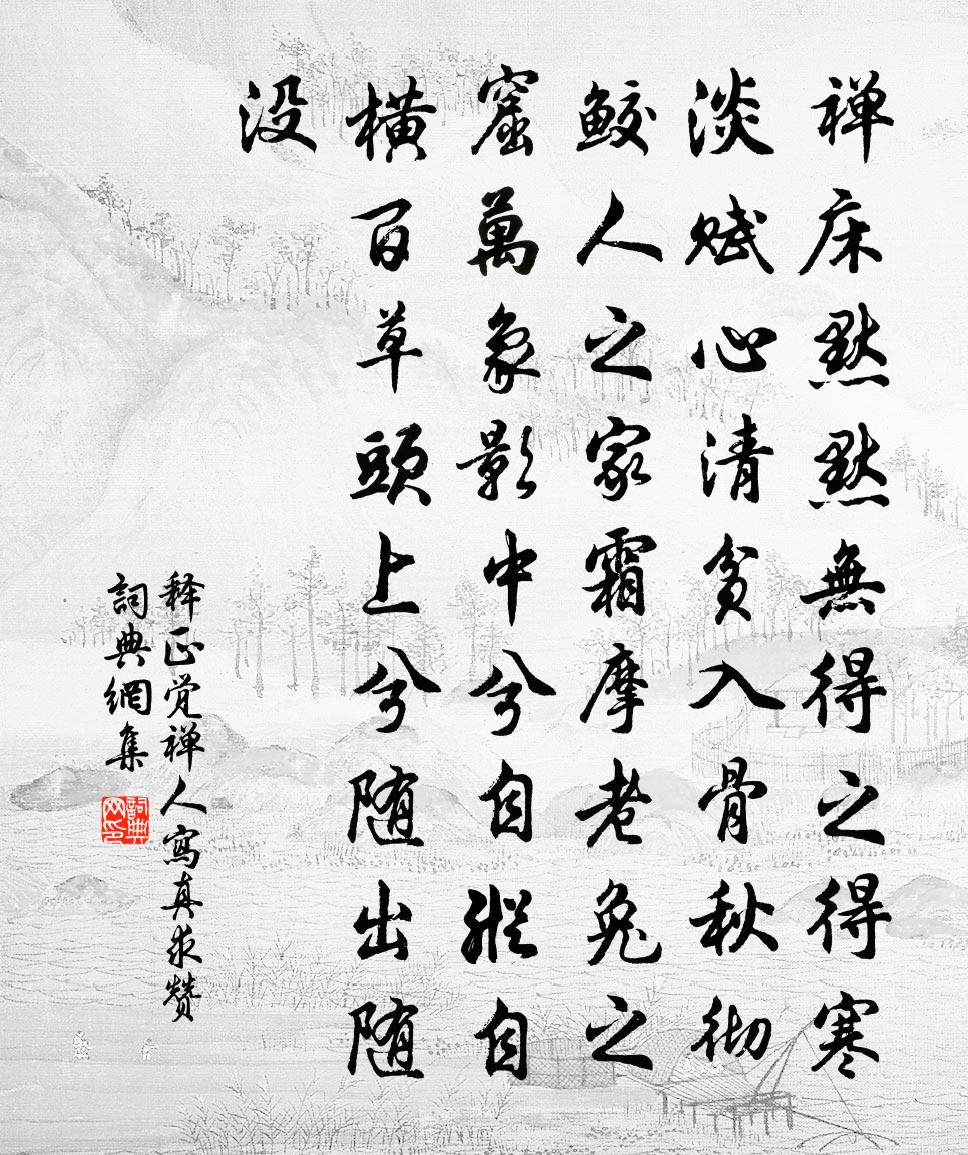 禅床黙黙無得之得寒
淡赋心清贫入骨秋彻
鲛人之家霜摩老兔之
窟萬象影中兮自縱自
横百草頭上兮随出随
没
释正觉禅人寫真求赞
詞典網集
詞典网印